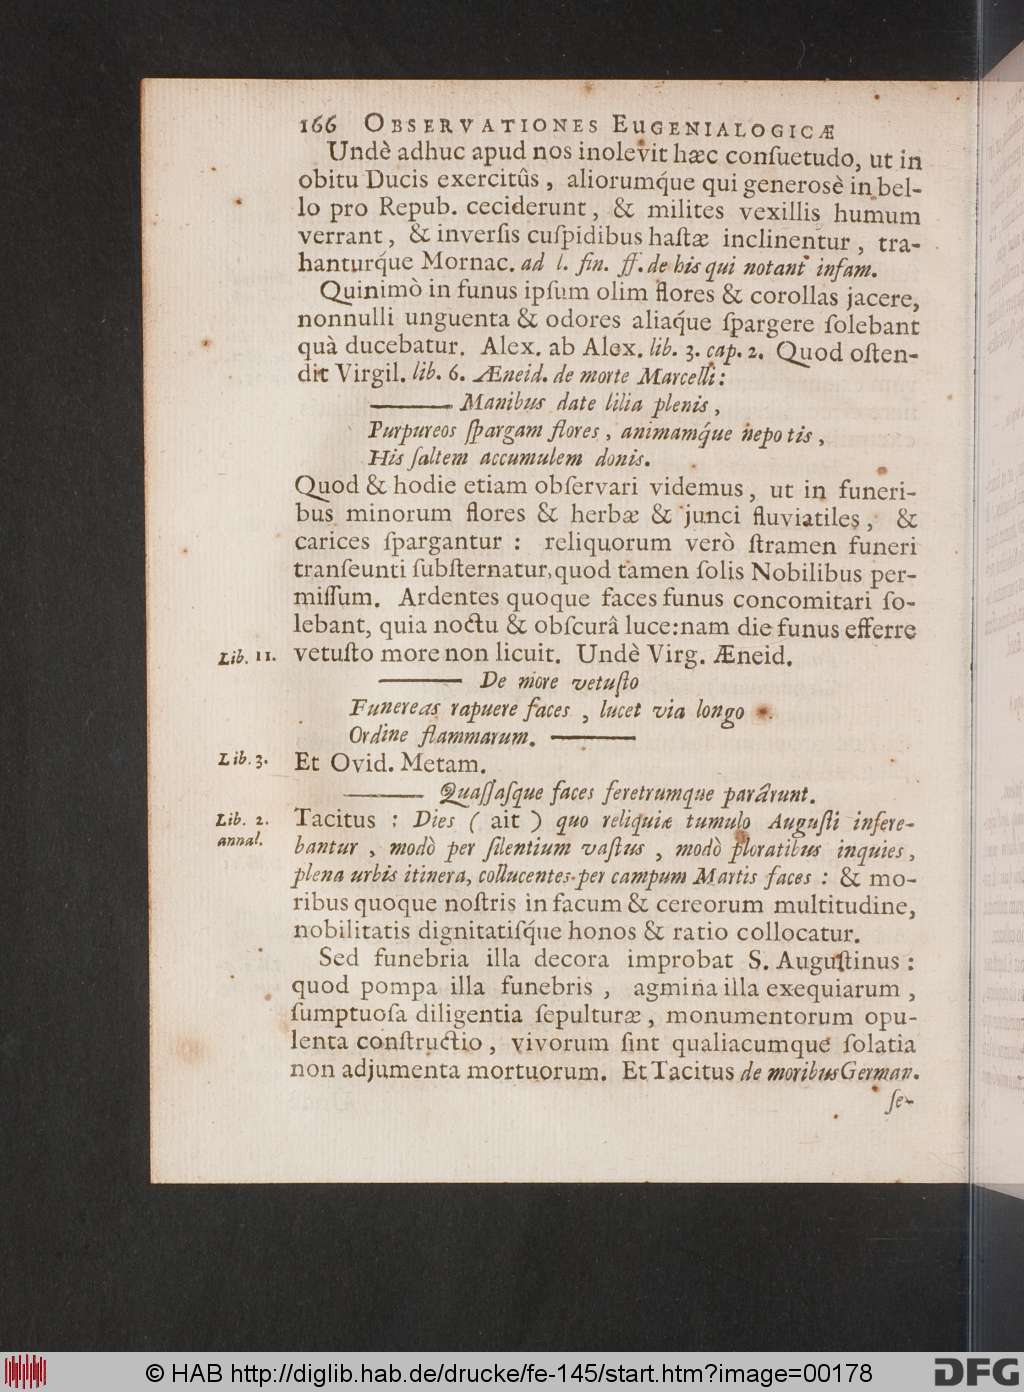 166 OBSERVATIONES EUGENIALOGICÆ
Undè adhuc apud nos inolevit hæc conſuetudo, ut in
obitu Ducis exercitûs, aliorumq́ue qui generosè in bel-
lo pro Repub. ceciderunt, & milites vexillis humum
verrant, & inverſis cuſpidibus haſtæ inclinentur, tra-
hanturq́ue Mornac. ad l. fin. ff. de his qui notant infam.
Quinimò in funus ipſum olim flores & corollas jacere,
nonnulli unguenta & odores aliaq́ue ſpargere ſolebant
quà ducebatur. Alex. ab Alex. lib. 3. cap. 2. Quod oſten-
dit Virgil. lib. 6. Æneid. de morte Marcelli:
——— Manibus date lilia plenis,
Purpureos ſpargam flores, animamq́ue nepotis,
His ſaltem accumulem donis.
Quod & hodie etiam obſervari videmus, ut in funeri-
bus minorum flores & herbæ & junci fluviatiles, &
carices ſpargantur: reliquorum verò ſtramen funeri
tranſeunti ſubſternatur, quod tamen ſolis Nobilibus per-
miſſum. Ardentes quoque faces funus concomitari ſo-
lebant, quia noctu & obſcurâ luce: nam die funus efferre
Lib. 11. vetuſto more non licuit. Undè Virg. Æneid.
——— De more vetuſto
Funereas rapuere faces, lucet via longo
Ordine flammarum. ———
Lib. 3. Et Ovid. Metam.
——— Quaſſaſque faces feretrumque parârunt.
Lib. 2. Tacitus: Dies (ait) quo reliquiæ tumulo Auguſti infere-
annal. bantur, modò per ſilentium vaſtus, modò ploratibus inquies,
plena urbis itinera, collucentes per campum Martis faces: & mo-
ribus quoque noſtris in facum & cereorum multitudine,
nobilitatis dignitatiſq́ue honos & ratio collocatur.
Sed funebria illa decora improbat S. Auguſtinus:
quod pompa illa funebris, agmina illa exequiarum,
ſumptuoſa diligentia ſepulturæ, monumentorum opu-
lenta conſtructio, vivorum ſint qualiacumque ſolatia
non adjumenta mortuorum. Et Tacitus de moribus German.
ſe-
© HAB http://diglib.hab.de/drucke/fe-145/start.htm?image=00178
DFG